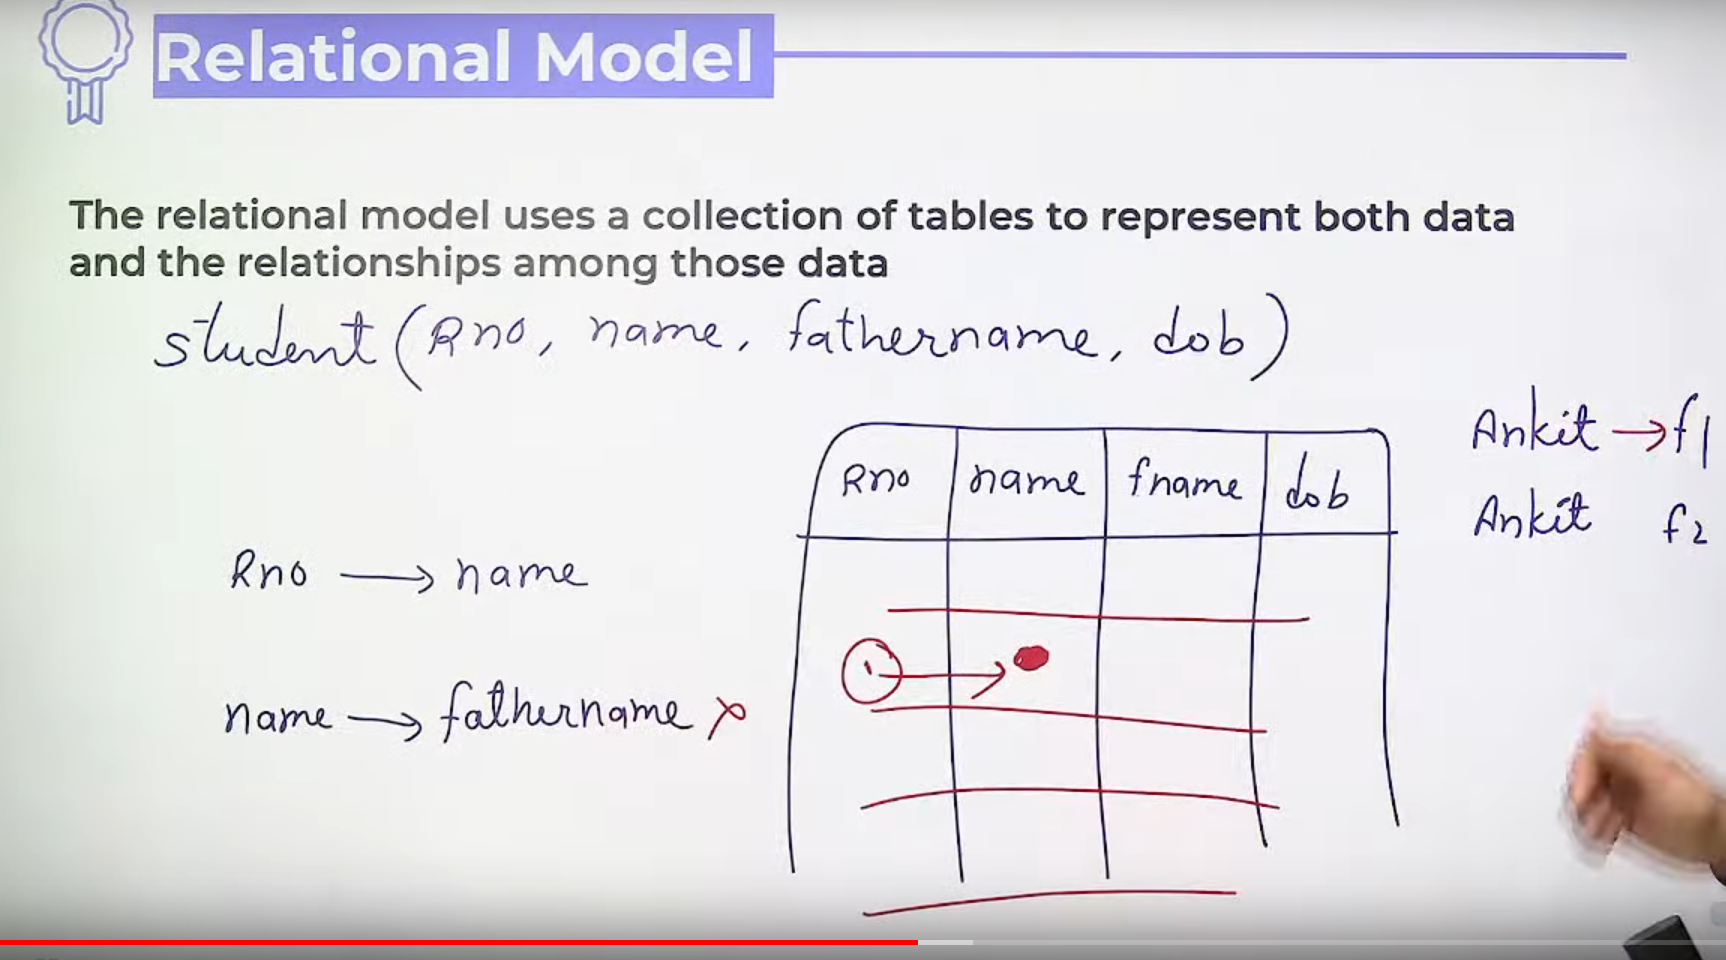 Relational Model
The relational model uses a collection of tables to represent both data
and the relationships among those data
student (Rno, name, fathername, dob)
Rno name fname dob
Ankit → f1
Ankit f2
Rno → name
1 →
name → fathername x